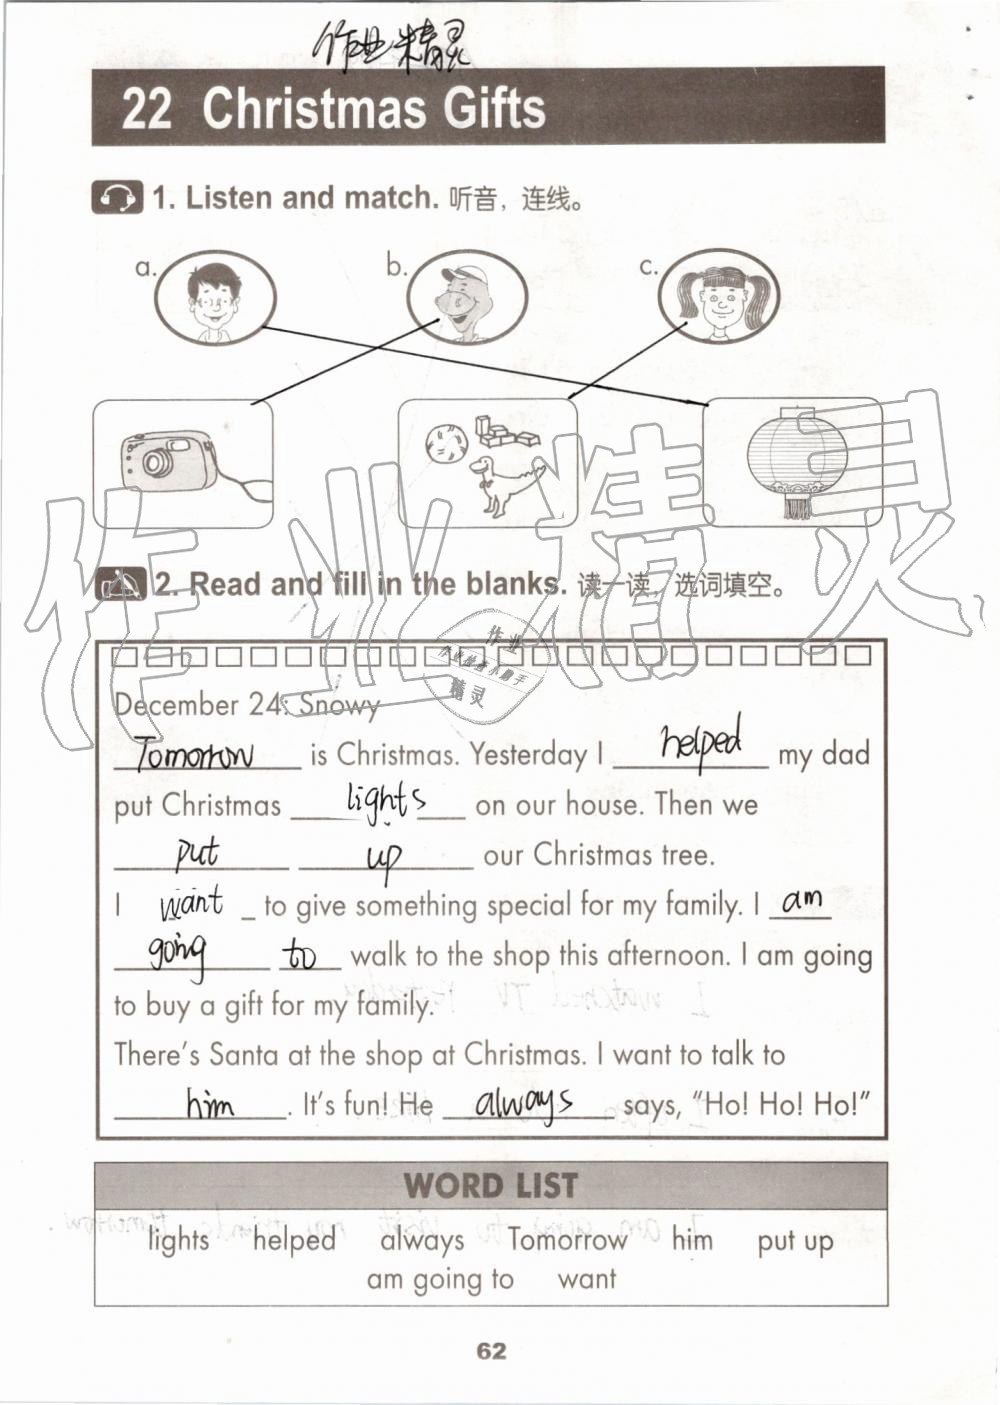 作业精灵
22 Christmas Gifts
1. Listen and match. 听音，连线。
a. b. c.
2. Read and fill in the blanks. 读一读，选词填空。
作业精灵
作业
作业检查小助手
精灵
December 24: Snowy
Tomorrow is Christmas. Yesterday I helped my dad
put Christmas lights on our house. Then we
put up our Christmas tree.
I want to give something special for my family. I am
going to walk to the shop this afternoon. I am going
to buy a gift for my family.
There's Santa at the shop at Christmas. I want to talk to
him. It's fun! He always says, "Ho! Ho! Ho!"
WORD LIST
lights helped always Tomorrow him put up
am going to want
62